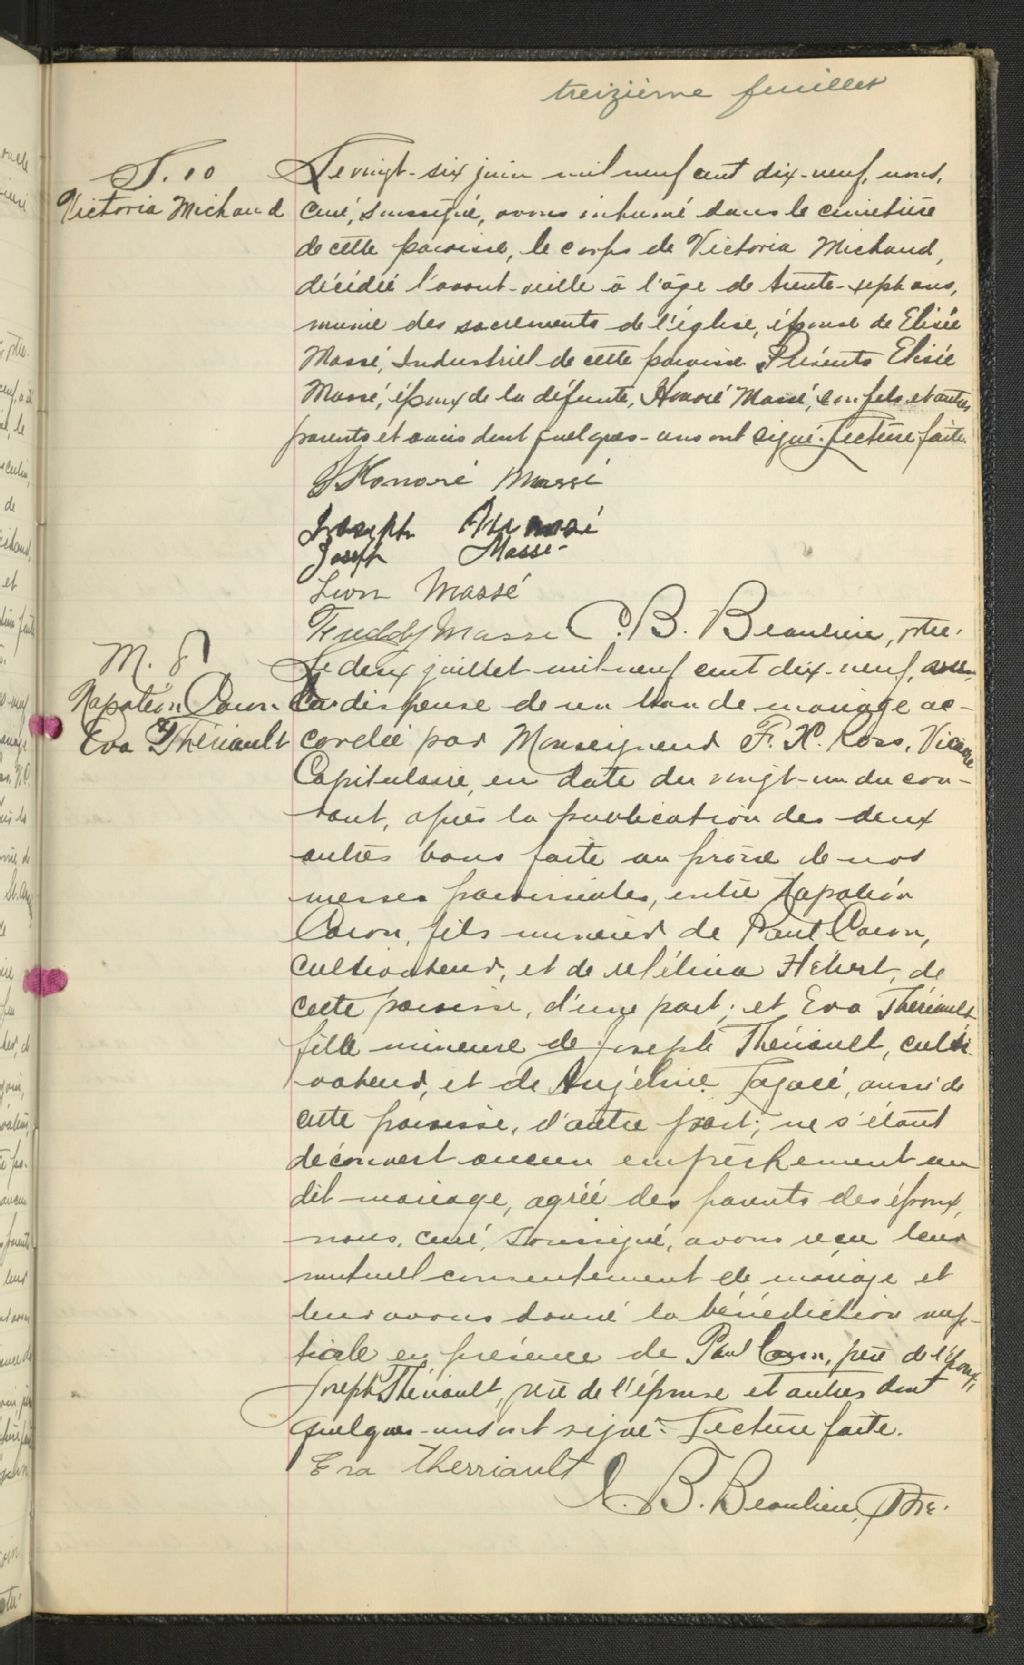 treizième feuillet
S. 10
Victoria Michaud
Le vingt-six juin mil neuf cent dix-neuf, nous,
curé, soussigné, avons inhumé dans le cimetière
de cette paroisse, le corps de Victoria Michaud,
décédée l'avant-veille à l'âge de trente-sept ans,
munie des sacrements de l'église, épouse de Elisée
Massé, Industriel de cette paroisse. Présents Elisée
Massé, époux de la défunte, Honoré Massé, son fils et autres
parents et amis dont quelques-uns ont signé. Lecture faite.
Honoré Massé
Joseph Massé
Joseph Massé
Léon Massé
Teuddy Masse C. B. Beaulieu, ptre.
M. 8
Napoléon Caron
Eva Thériault
Le deux juillet mil neuf cent dix-neuf, avec
la dispense de un ban de mariage ac-
cordée par Monseigneur F. X. Ross, Vicaire
Capitulaire, en date du vingt-un du cou-
rant, après la publication des deux
autres bans faite au prône de nos
messes paroissiales, entre Napoléon
Caron, fils mineur de Paul Caron,
cultivateur, et de Mélina Hébert, de
cette paroisse, d'une part; et Eva Thériault
fille mineure de Joseph Thériault, culti-
vateur, et de Angéline Lagacé, aussi de
cette paroisse, d'autre part; ne s'étant
découvert aucun empêchement au
dit mariage, agréé des parents des époux,
nous, curé, soussigné, avons reçu leur
mutuel consentement de mariage et
leur avons donné la bénédiction nup-
tiale en présence de Paul Caron, père de l'époux,
Joseph Thériault, père de l'épouse et autres dont
quelques-uns ont signé. Lecture faite.
Eva Therriault
C. B. Beaulieu, Ptre.